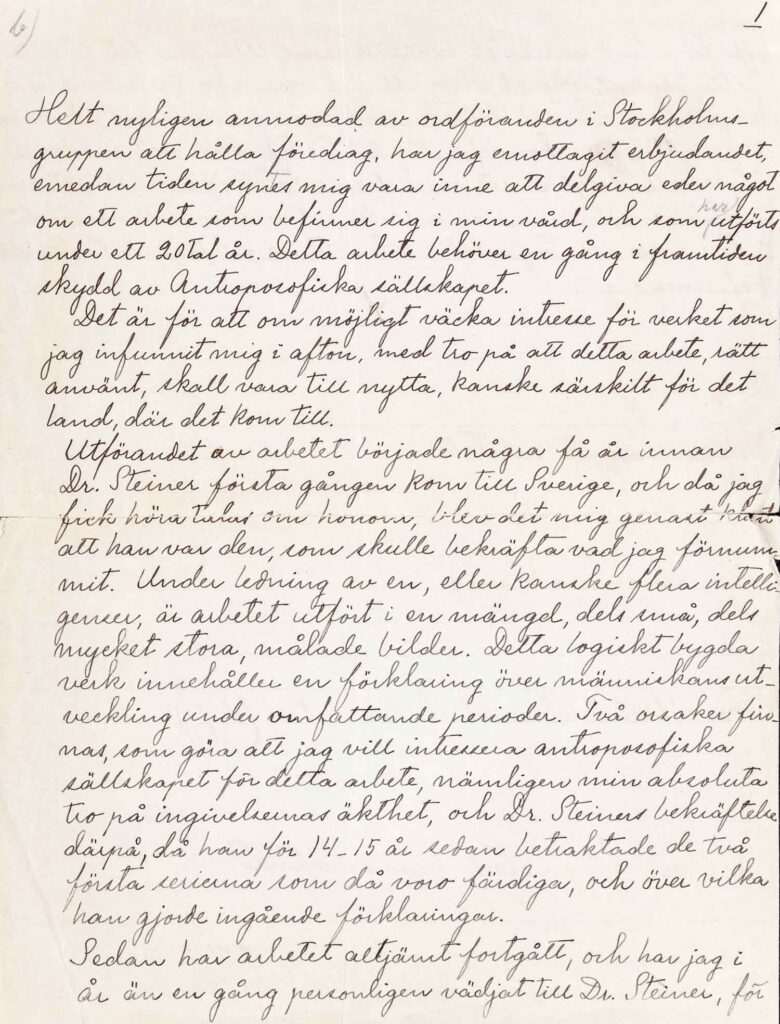 b)
1
Helt nyligen anmodad av ordföranden i Stockholms-
gruppen att hålla föredrag, har jag emottagit erbjudandet,
emedan tiden synes mig vara inne att delgiva eder något
har
om ett arbete som befinner sig i min vård, och som utförts
under ett 20tal år. Detta arbete behöver en gång i framtiden
skydd av Antroposofiska sällskapet.
Det är för att om möjligt väcka intresse för verket som
jag infunnit mig i afton, med tro på att detta arbete, rätt
använt, skall vara till nytta, kanske särskilt för det
land, där det kom till.
Utförandet av arbetet började några få år innan
Dr. Steiner första gången kom till Sverige, och då jag
fick höra talas om honom, blev det mig genast klart
att han var den, som skulle bekräfta vad jag förnum-
mit. Under ledning av en, eller kanske flera intelli-
genser, är arbetet utfört i en mängd, dels små, dels
mycket stora, målade bilder. Detta logiskt bygda
verk innehåller en förklaring över människans ut-
veckling under omfattande perioder. Två orsaker fin-
nas, som göra att jag vill intressera antroposofiska
sällskapet för detta arbete, nämligen min absoluta
tro på ingivelsernas äkthet, och Dr. Steiners bekräftelse
därpå, då han för 14-15 år sedan betraktade de två
första serierna som då voro färdiga, och över vilka
han gjorde ingående förklaringar.
Sedan har arbetet altjämt fortgått, och har jag i
år än en gång personligen vädjat till Dr. Steiner, för